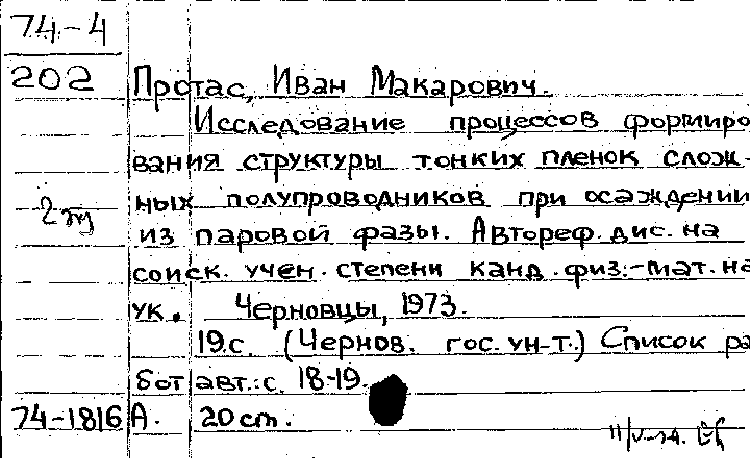 74-4
202 Протас, Иван Макарович.
Исследование процессов формиро
вания структуры тонких пленок слож-
2 экз ных полупроводников при осаждении
из паровой фазы. Автореф. дис. на
соиск. учен. степени канд. физ.-мат. на
ук. Черновцы, 1973.
19 с. (Чернов. гос. ун-т.) Список ра
бот авт.: с. 18-19.
74-1816 А. 20 cm.